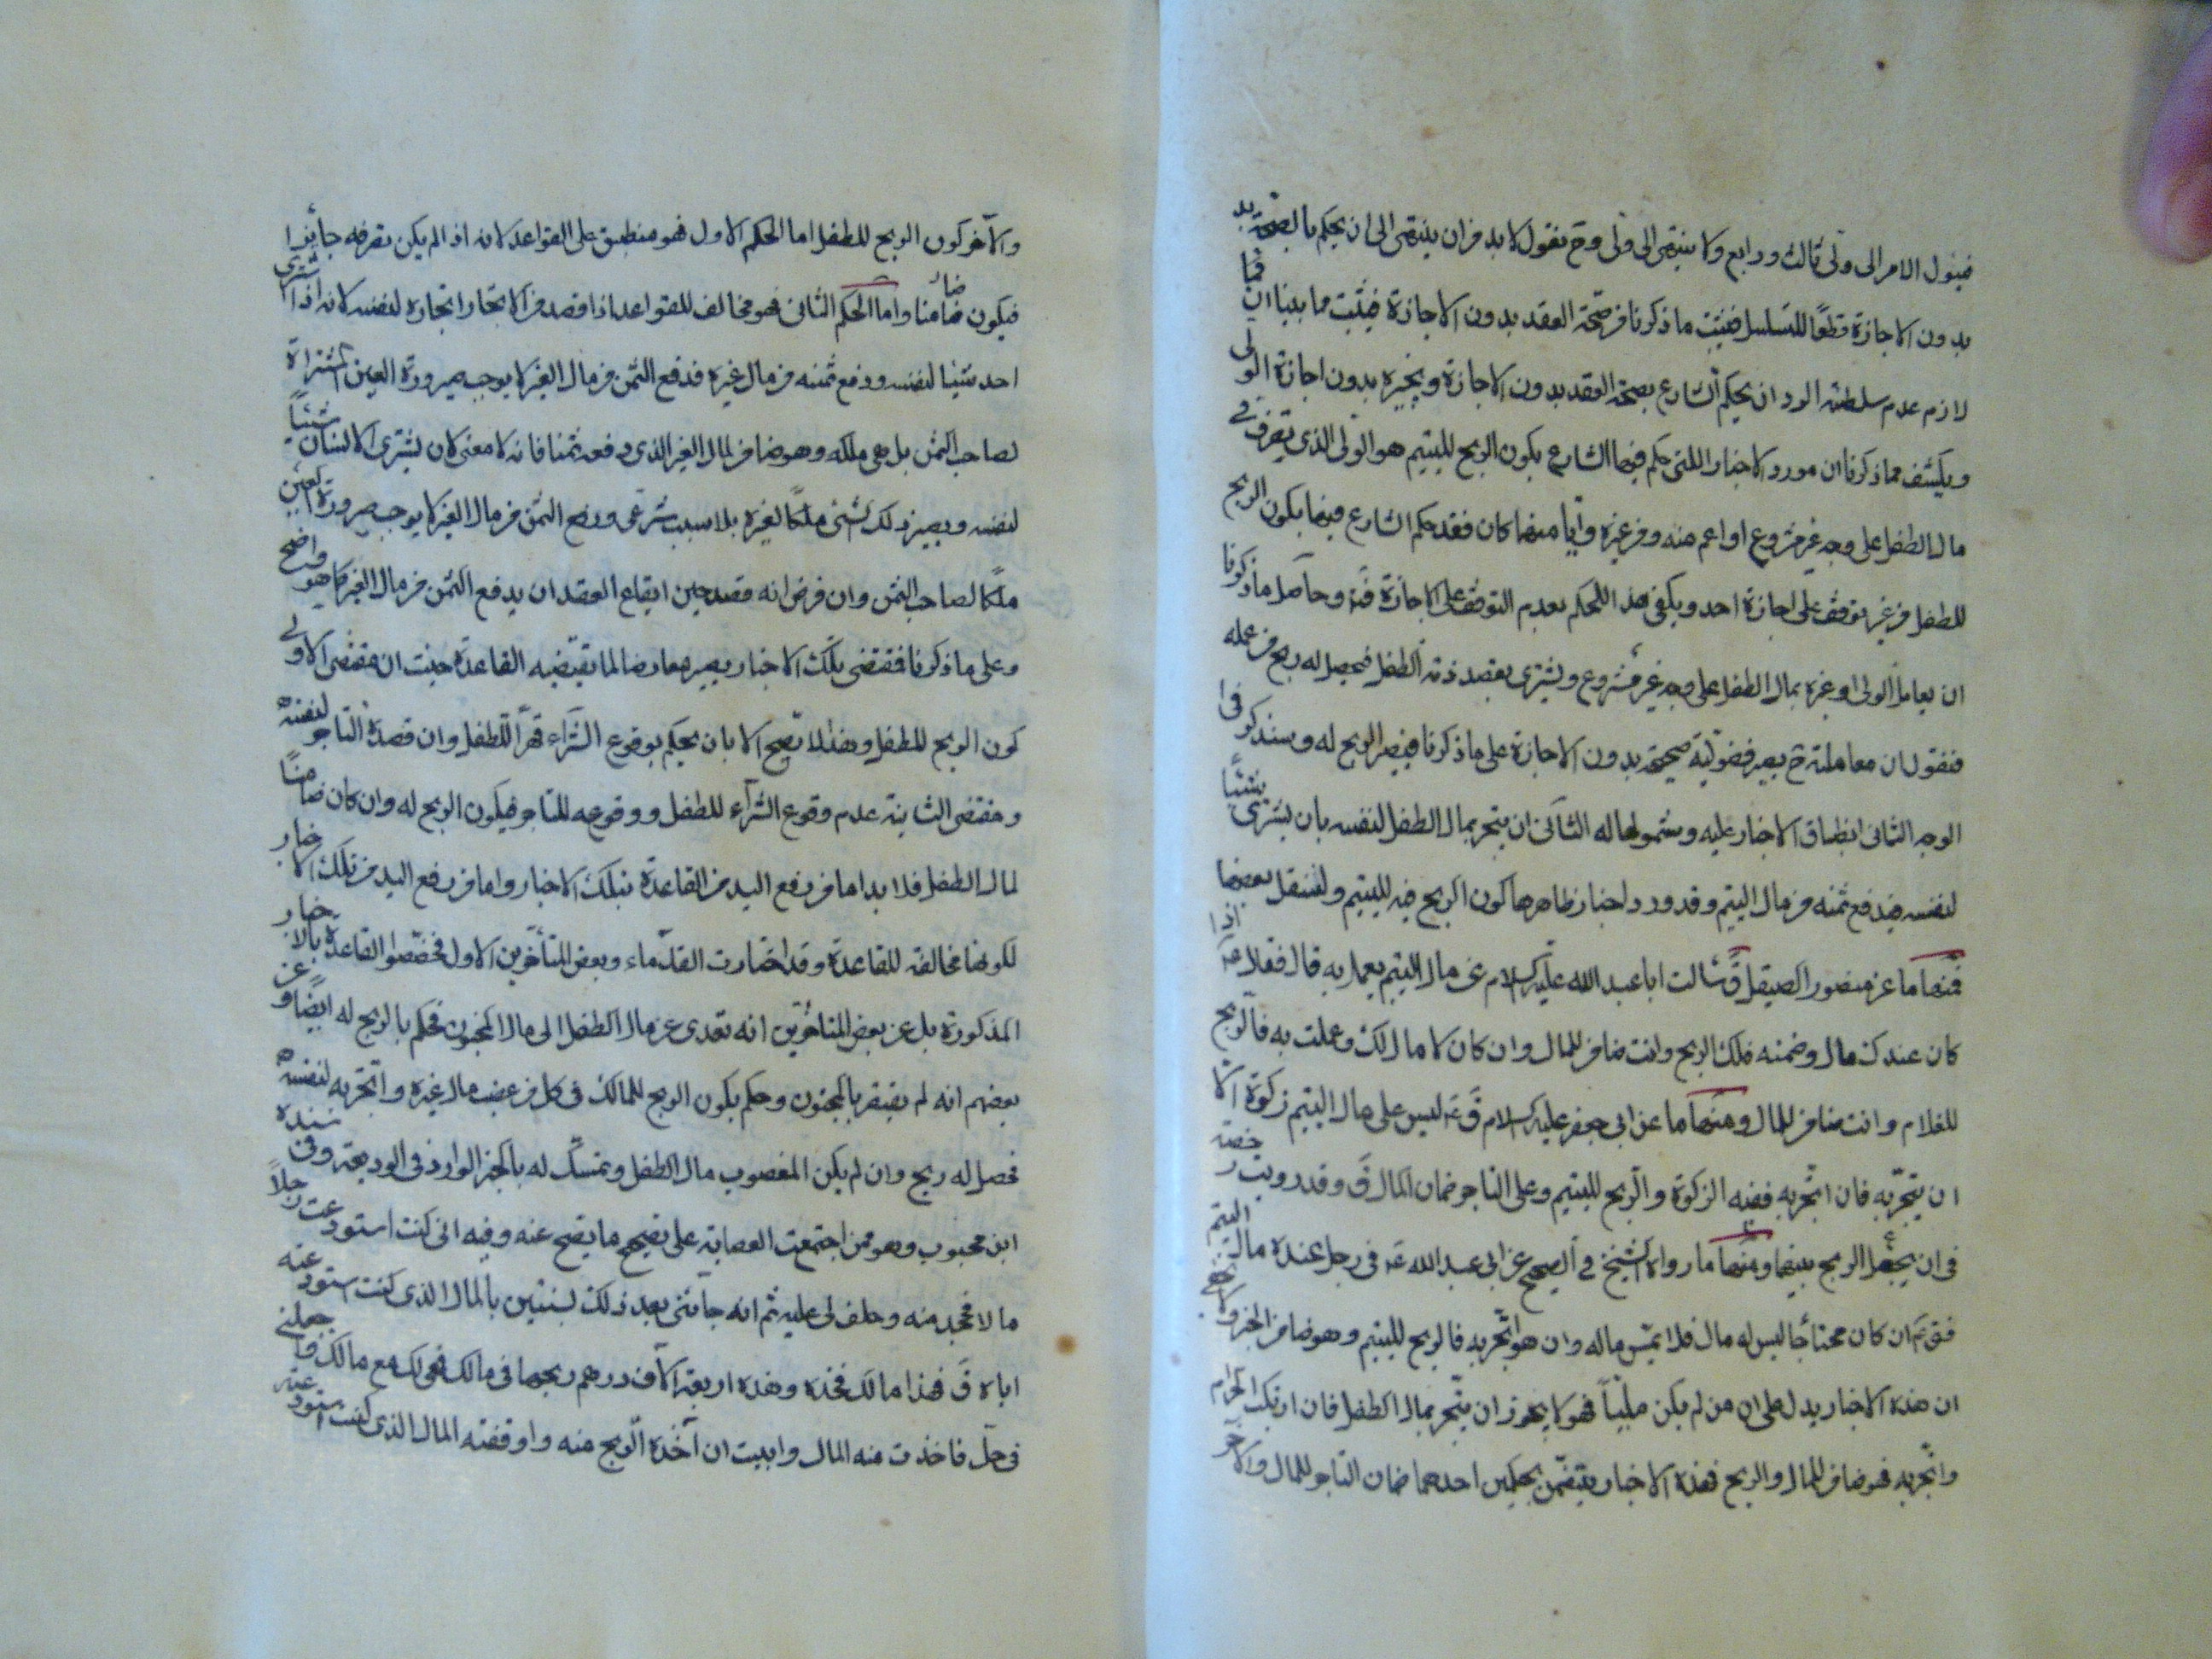 فيئول الامر الى ولى ثالث ورابع ولا ينتهى الى ولى وح نقول لا بد من ان ينتهى الى ان يحكم بالصحة
بدون الاجازة قطعًا للتسلسل فيثبت ما ذكرنا من صحة العقد بدون الاجازة فيثبت مما بينا ان
لازم عدم سلطنة الود ان يحكم الشارع بصحة العقد بدون الاجازة ويجيزه بدون اجازة الولى
ويكشف مما ذكرنا ان مورد الاخبار اللتى حكم فيها الشارع بكون الربح لليتيم هو الولى الذى يتصرف في
مال الطفل على وجه غير مشروع او اعم منه ومن غيره وايّا منهما كان فقد حكم الشارع فيهما بكون الربح
للطفل من غير توقف على اجازة احد ويكفى هذا الحكم بعدم التوقف على الاجازة فيه وحاصل ما ذكرنا
ان يعامل الولى او غيره بمال الطفل على وجه غير مشروع ويشترى بقصد ذمة الطفل فيحصل له ربح من عمله
فنقول ان معاملته ح يصير فضولية صحيحة بدون الاجازة على ما ذكرنا فيصير الربح له وسنذكر فى
الوجه الثانى انطباق الاخبار عليه وشمولها له الثانى ان يتجر بمال الطفل لنفسه بان يشترى شيئًا
لنفسه فيدفع ثمنه من مال اليتيم وقد ورد اخبار ظاهرها كون الربح فيه لليتيم ولننقل بعضها
فمنها ما عن منصور الصيقل ق سالت ابا عبد الله عليه السلام عن مال اليتيم يعمل به قال فقال اذا
كان عندك مال وضمنه فلك الربح وانت ضامن للمال وان كان لا مال لك وعملت به فالربح
للغلام وانت ضامن للمال ومنها ما عن ابى جعفر عليه السلام ق ليس على مال اليتيم زكوة الا
ان يتجر به فان اتجر به ففيه الزكوة والربح لليتيم وعلى التاجر ضمان المال ق وقد رويت رخصة
فى ان يجعل الربح بينهما ومنها ما رواه الشيخ في الصحيح عن ابى عبد الله ع فى رجل عنده مال اليتيم
فق ع ان كان محتاجًا ليس له مال فلا يمس ماله وان هو اتجر به فالربح لليتيم وهو ضامن الخبر
ان هذه الاخبار يدل على ان من لم يكن مليّاً فهو لا يجوز ان يتجر بمال الطفل فان ارتكب الحرام
واتجر به فهو ضامن للمال والربح فهذه الاخبار يتضمن بحكمين احدهما ضمان التاجر للمال والاخر
والآخر كون الربح للطفل اما الحكم الاول فهو منطبق على القواعد لانه اذا لم يكن تصرفه جائزا
فيكون ضامنا واما الحكم الثانى فهو مخالف للقواعد اذا قصد من الاتجار اتجاره لنفسه لانه اذا اشترى
احد شيئا لنفسه ودفع ثمنه من مال غيره فدفع الثمن من مال الغير لا يوجب صيرورة العين المشتراة
لصاحب الثمن بل هى ملكه وهو ضامن لمال الغير الذى دفعه ثمنا فانه لا معنى لان يشترى الانسان شيئًا
لنفسه ويصير ذلك الشئ ملكًا لغيره بلا سبب شرعى ودفع الثمن من مال الغير لا يوجب صيرورة العين
ملكا لصاحب الثمن وان فرض انه قصد حين ايقاع العقد ان يدفع الثمن من مال الغير كما هو واضح
وعلى ما ذكرنا فمقتضى تلك الاخبار يصير معارضا لما يقتضيه القاعدة حيث ان مقتضى الاولى
كون الربح للطفل وهذا لا تصح الا بان يحكم بوقوع الشراء قهرًا للطفل وان قصده التاجر لنفسه
ومقتضى الثانية عدم وقوع الشراء للطفل ووقوعه للتاجر فيكون الربح له وان كان ضامنًا
لمال الطفل فلا بد اما من رفع اليد من القاعدة بتلك الاخبار واما من رفع اليد من تلك الاخبار
لكونها مخالفة للقاعدة وقد اختارت القدماء وبعض المتأخرين الاول فخصصوا القاعدة بالاخبار
المذكورة بل عن بعض المتاخرين انه تعدى عن مال الطفل الى مال المجنون فحكم بالربح له ايضًا وعن
بعضهم انه لم يقتصر بالمجنون وحكم بكون الربح للمالك فى كل من غصب مال غيره واتجر به لنفسه
فحصل له ربح وان لم يكن المغصوب مال الطفل وتمسك له بالخبر الوارد فى الوديعة وفى سنده
ابن محبوب وهو ممن اجتمعت العصابة على تصحيح ما يصح عنه وفيه انى كنت استودعت رجلاً
مالا فجحد منه وحلف لى عليه ثم انه جائنى بعد ذلك بسنتين بالمال الذى كنت استودعته
اياه ق فهذا مالك فخذه وهذه اربعة الاف درهم ربحها فى مالك فهى لك مع مالك واجعلنى
فى حل فاخذت منه المال وابيت ان آخذه الربح منه واوقفته المال الذى كنت استودعته